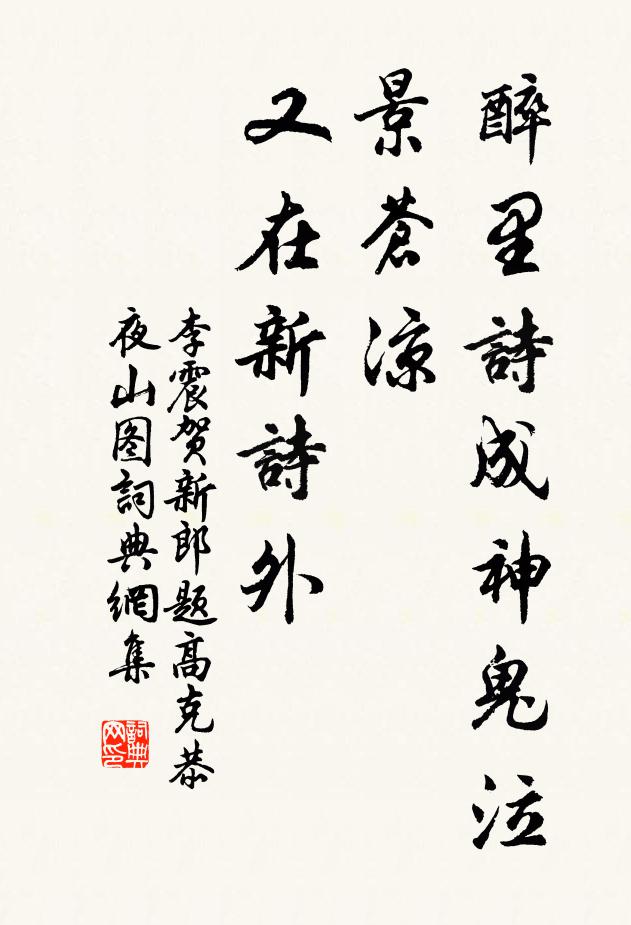 醉里詩成神鬼泣
景蒼涼
又在新詩外
李震贺新郎题高克恭
夜山图詞典網集
詞典网印